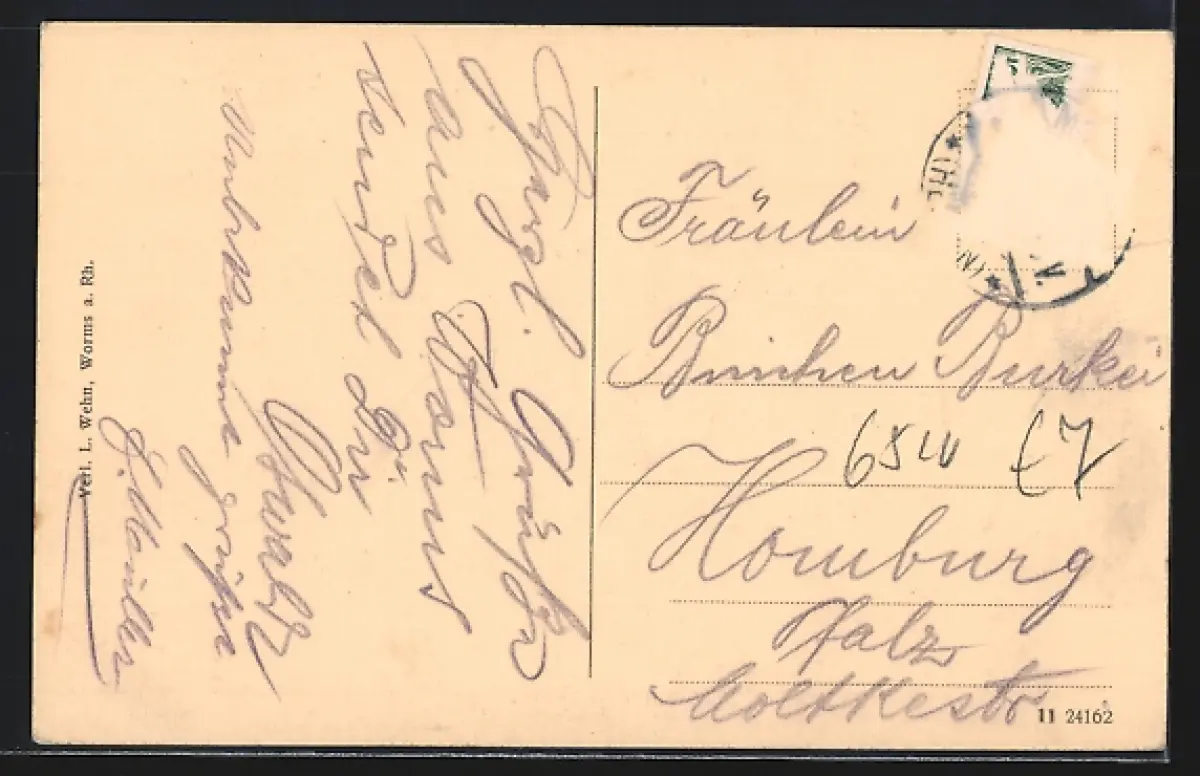 Herzl. Grüße
aus Worms
sendet Dir
Schwabz
Unbekannte grüße
L. Müller
Verl. L. Wehn, Worms a. Rh.
Fräulein
Binchen Burkei
Homburg
Pfalz
Moltkestr
11 24162